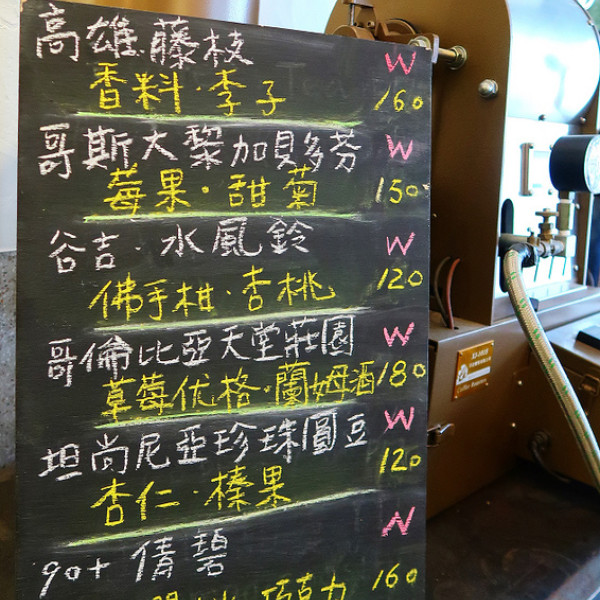 高雄．藤枝 W
香料．李子 160
哥斯大黎加貝多芬 W
莓果．甜菊 150
谷吉．水風鈴 W
佛手柑．杏桃 120
哥倫比亞天堂莊園 W
草莓优格．蘭姆酒 180
坦尚尼亞珍珠圓豆 W
杏仁．榛果 120
90+ 倩碧 N
巧克力 160